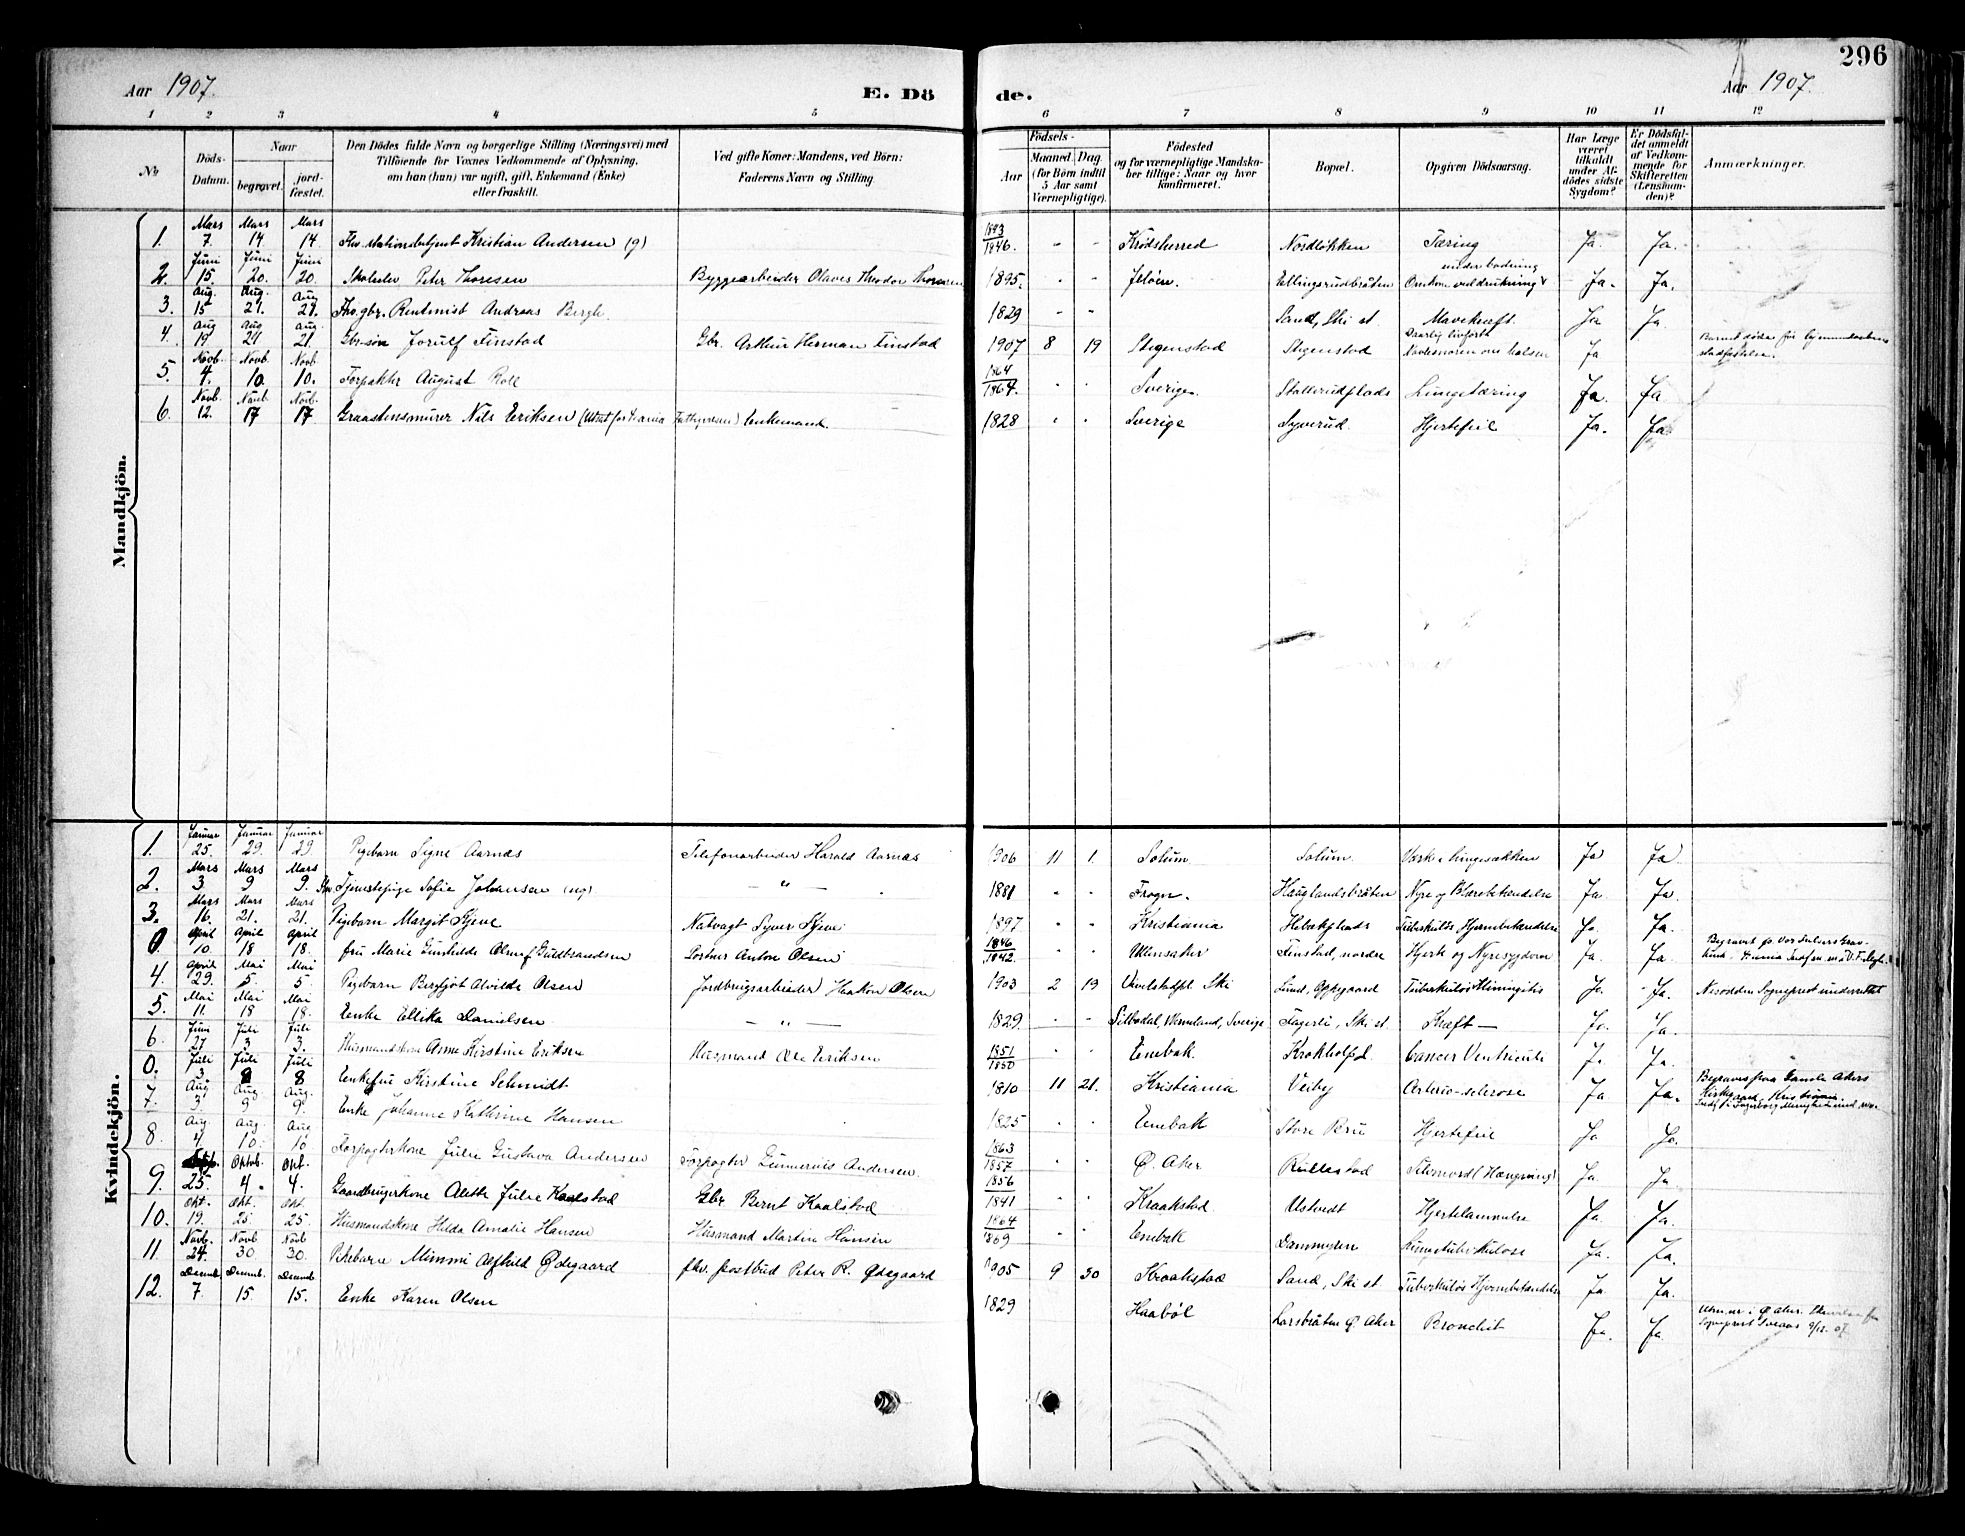 296
Aar 1907. E. Dö de. Aar 1907.
1 2 3 4 5 6 7 8 9 10 11 12
No
Döds-Datum.
Naar
begravet.
jord-fæstet.
Den Dödes fulde Navn og borgerlige Stilling (Næringsvei) med
Tilföiende for Voxnes Vedkommende af Oplysning,
om han (hun) var ugift, gift, Enkemand (Enke)
eller fraskilt.
Ved gifte Koner: Mandens, ved Börn:
Faderens Navn og Stilling.
Födsels-
Aar
Maaned. Dag.
(for Börn indtil
5 Aar samt
Værnepligtige).
Födested
og for værnepligtige Mandska-
ber tillige: Naar og hvor
konfirmeret.
Bopæl.
Opgiven Dödsaarsag.
Har Læge
været
tilkaldt
under Af-
dödes sidste
Sygdom?
Er Dödsfal-
det anmeldt
af Vedkom-
mende for
Skifteretten
(Lensman-
den)?
Anmærkninger.
Mandkjön.
1. Mars 7. Mars 14 Mars 14 Fhv. stationsbetjent Kristian Andersen (g) 1846. " " Krödsherred Nordløkken Tæring Ja. Ja.
2. Juni 15. Juni 20. Juni 20. Skoleelev Peter Thoresen Byggearbeider Olaves Theodor Thoresen 1895. " " Jeløen. Ellingsrudbråten Omkom ved drukning under badning Ja. Ja.
3. Aug. 15 Aug. 21. Aug. 21. Fhv. gbr. Rentenist Andreas Bergh 1829 " " Sand, Ski st. Mavekræft. Ja Ja.
4. Aug 19 Aug 21 Aug. 21. Gbr.søn Jorulf Finstad Gbr. Arthur Herman Finstad 1907 8 19 Stegenstad Stegenstad Navlesnoren om halsen Ja
5. Novb. 4. Novb. 10. Novb. 10. Forpakter August Roll 1864 1864. " " Sverige. Stallerudplads Lungetæring Ja. Ja
6. Novb. 12. Novb. 17 Novb. 17 Graastensmurer Nils Eriksen Enkemand. 1828 " " Sverige Syverud. Hjertefeil Ja. Ja.
Kvindekjön.
1. Januar 25. Januar 29. Januar 29 Pigebarn Signe Aarnæs Telefonarbeider Harald Aarnæs 1906 11 1. Solum Solum. Værk i lungesækken Ja Ja
2. Mars 3. Mars 9 Mars 9. Tjenestepige Sofie Johansen (ug) — " — 1881 " " Frogn. Hauglandsbråten Nyre og Blærebetændelse Ja. Ja
3. Mars 16. Mars 21. Mars 21. Pigebarn Margit Skjeve Natvagt Syver Skjeve 1897 " " Kristiania Hebækplads Tuberkuløs Hjernebetændelse Ja. Ja.
0 April 10. April 18 April 18. Fru Marie Gunhilde Olsen f. Guldbrandsen Portner Anton Olsen 1846 1842. " " Ullensaker Finstad, nordre Hjerte og Nyresygdom Ja. Ja. Begravet på Vor Frelsers Grav-
4. April 29. Mai 5. Mai 5. Pigebarn Bergljot Alvilde Olsen Jordbrugsarbeider Haakon Olsen 1903 2 19 Vevelstadpl. Ski Lund, Oppegaard Tuberkuløs Meningitis Ja. Ja. Nesodden Sogneprest underrettet
5. Mai 11. Mai 18 Mai 18. Enke Ellika Danielsen — " — 1829. " " Silbodal, Vermland, Sverige Fagerli, Ski st. Kræft — Ja. Ja.
6. Juni 27 Juli 3 Juli 3. Husmandskone Anne Kirstine Eriksen Husmand Ole Eriksen 1851 1850 " " Enebak. Krokholpl. Cancer Ventriculi Ja. Ja.
0. Juli 3 Juli 8 Juli 8 Enkefru Kirstine Schmidt 1810 11 21. Kristiania Veiby Arterio-sclerose Ja Ja. Begraves paa Gamle Akers Kirkegaard, Kristiania
7. Aug 3. Aug 9 Aug. 9. Enke Johanne Kathrine Hansen 1825 " " Enebak Store Bru Hjertefeil Ja Ja.
8 Aug. 4 Aug. 10. Aug 10 Forpagterkone Julie Gustava Andersen Forpagter Gunnerius Andersen. 1863 1857 " " Ø. Aker Rullestad Selvmord (Hængning) Ja. Ja.
9. Septb. 25. Oktob. 4. Okt. 4. Gaardbrugerkone Alette Julie Kaalstad Gbr Bernt Kaalstad 1856 1841 " " Kraakstad Ustvedt Hjertelammelse Ja Ja.
10. Okt. 19. Okt. 25. Okt. 25. Husmandskone Hilda Amalie Hansen Husmand Martin Hansen 1864 1869 " " Enebak Dammyren Lungetuberkulose Ja. Ja.
11. Novb. 24. Novb 30 Novb 30. Pikebarn Mimmi Alfhild Ødegaard fhv. postbud Peter R. Ødegaard 1905 9 30 Kraakstad Sand, Ski st. Tuberkuløs Hjernebetændelse Ja. Ja.
12. Decemb. 7. Decemb. 15. Decemb 15. Enke Karen Olsen 1829 Haabøl Larsbråten Ø. Aker Bronchit Ja. Ja.